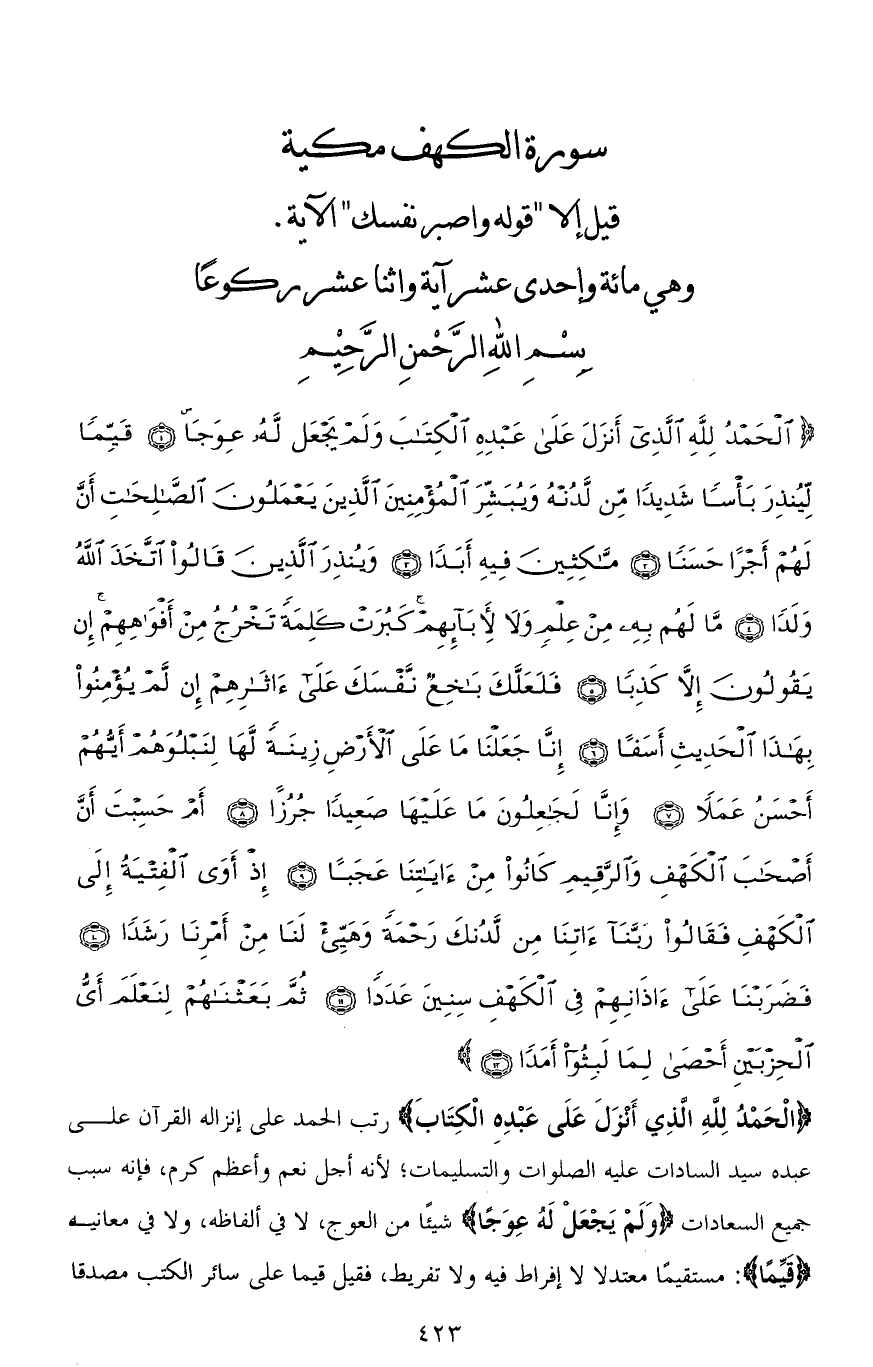 سورة الكهف مكية
قيل إلا "قوله واصبر نفسك" الآية.
وهي مائة وإحدى عشر آية واثنا عشر ركوعًا
بِسْمِ اللهِ الرَّحْمنِ الرَّحِيْمِ
﴿ ٱلْحَمْدُ لِلَّهِ ٱلَّذِىٓ أَنزَلَ عَلَىٰ عَبْدِهِ ٱلْكِتَـٰبَ وَلَمْ يَجْعَل لَّهُۥ عِوَجَاۜ ۝١ قَيِّمًا
لِّيُنذِرَ بَأْسًا شَدِيدًا مِّن لَّدُنْهُ وَيُبَشِّرَ ٱلْمُؤْمِنِينَ ٱلَّذِينَ يَعْمَلُونَ ٱلصَّـٰلِحَـٰتِ أَنَّ
لَهُمْ أَجْرًا حَسَنًا ۝٢ مَّـٰكِثِينَ فِيهِ أَبَدًا ۝٣ وَيُنذِرَ ٱلَّذِينَ قَالُوا۟ ٱتَّخَذَ ٱللَّهُ
وَلَدًا ۝٤ مَّا لَهُم بِهِۦ مِنْ عِلْمٍ وَلَا لِأَبَآئِهِمْ ۚ كَبُرَتْ كَلِمَةً تَخْرُجُ مِنْ أَفْوَٰهِهِمْ ۚ إِن
يَقُولُونَ إِلَّا كَذِبًا ۝٥ فَلَعَلَّكَ بَـٰخِعٌ نَّفْسَكَ عَلَىٰٓ ءَاثَـٰرِهِمْ إِن لَّمْ يُؤْمِنُوا۟
بِهَـٰذَا ٱلْحَدِيثِ أَسَفًا ۝٦ إِنَّا جَعَلْنَا مَا عَلَى ٱلْأَرْضِ زِينَةً لَّهَا لِنَبْلُوَهُمْ أَيُّهُمْ
أَحْسَنُ عَمَلًا ۝٧ وَإِنَّا لَجَـٰعِلُونَ مَا عَلَيْهَا صَعِيدًا جُرُزًا ۝٨ أَمْ حَسِبْتَ أَنَّ
أَصْحَـٰبَ ٱلْكَهْفِ وَٱلرَّقِيمِ كَانُوا۟ مِنْ ءَايَـٰتِنَا عَجَبًا ۝٩ إِذْ أَوَى ٱلْفِتْيَةُ إِلَى
ٱلْكَهْفِ فَقَالُوا۟ رَبَّنَآ ءَاتِنَا مِن لَّدُنكَ رَحْمَةً وَهَيِّئْ لَنَا مِنْ أَمْرِنَا رَشَدًا ۝١٠
فَضَرَبْنَا عَلَىٰٓ ءَاذَانِهِمْ فِى ٱلْكَهْفِ سِنِينَ عَدَدًا ۝١١ ثُمَّ بَعَثْنَـٰهُمْ لِنَعْلَمَ أَىُّ
ٱلْحِزْبَيْنِ أَحْصَىٰ لِمَا لَبِثُوٓا۟ أَمَدًا ۝١٢ ﴾
﴿الْحَمْدُ لِلَّهِ الَّذِي أَنْزَلَ عَلَى عَبْدِهِ الْكِتَابَ﴾ رتب الحمد على إنزاله القرآن علـــى
عبده سيد السادات عليه الصلوات والتسليمات؛ لأنه أجل نعم وأعظم كرم، فإنه سبب
جميع السعادات ﴿وَلَمْ يَجْعَلْ لَهُ عِوَجًا﴾ شيئًا من العوج، لا في ألفاظه، ولا في معانيـه
﴿قَيِّمًا﴾: مستقيمًا معتدلا لا إفراط فيه ولا تفريط، فقيل قيما على سائر الكتب مصدقا
٤٢٣